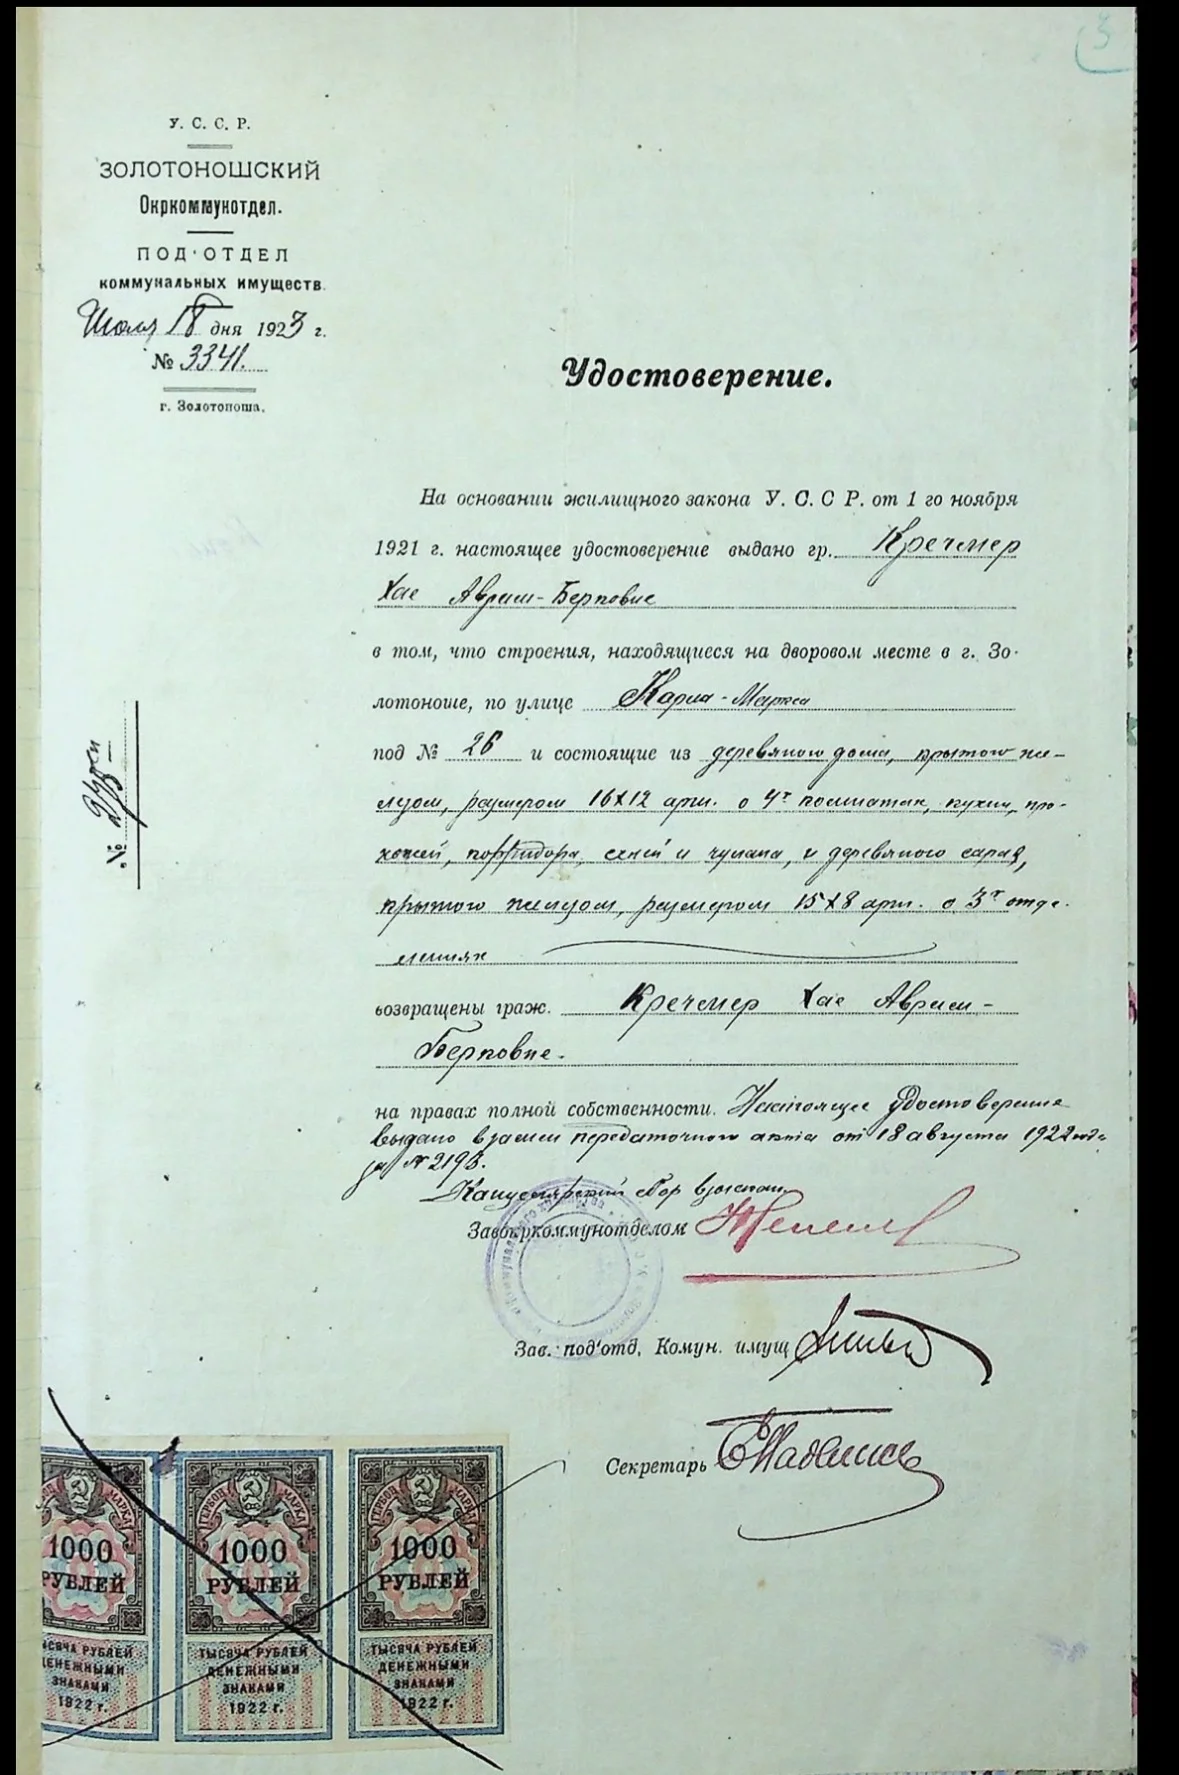 3
У. С. С. Р.
ЗОЛОТОНОШСКИЙ
Окркоммунотдел.
ПОД'ОТДЕЛ
коммунальных имуществ.
18 дня 1923 г.
№ 3341.
г. Золотоноша.
Удостоверение.
На основании жилищного закона У. С. С Р. от 1 го ноября
1921 г. настоящее удостоверение выдано гр. Кречмер
Хае Авриш-Берковне
в том, что строения, находящиеся на дворовом месте в г. Зо-
лотоноше, по улице Карла-Маркса
под № 26 и состоящие из деревяного дома, крытого же-
лезом, размером 16х12 арш. о 4х комнатах, кухни, при-
хожей, корридора, сеней и чулана, и деревяного сарая,
крытого железом, размером 15х8 арш. о 3х отде-
лениях
возвращены граж. Кречмер Хае Авриш-
Берковне.
на правах полной собственности. Настоящее Удостоверение
выдано взамен передаточного акта от 18 августа 1922 года
за № 2193.
Канцелярский сбор взыскан.
Завокркоммунотделом
Зав. под'отд. Комун. имущ
Секретарь
№
ГЕРБОВ. МАРКА
1000
РУБЛЕЙ
ТЫСЯЧА РУБЛЕЙ
ДЕНЕЖНЫМИ
ЗНАКАМИ
1922 г.
ГЕРБОВ. МАРКА
1000
РУБЛЕЙ
ТЫСЯЧА РУБЛЕЙ
ДЕНЕЖНЫМИ
ЗНАКАМИ
1922 г.
ГЕРБОВ. МАРКА
1000
РУБЛЕЙ
ТЫСЯЧА РУБЛЕЙ
ДЕНЕЖНЫМИ
ЗНАКАМИ
1922 г.